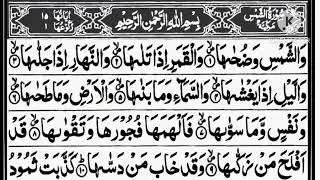 سورة الشمس
بسم الله الرحمن الرحيم
والشمس وضحٰىها والقمر اذا تلٰىها والنهار اذا جلّٰىها
واليل اذا يغشٰىها والسماء وما بنٰىها والارض وما طحٰىها
ونفس وما سوّٰىها فالهمها فجورها وتقوٰىها قد
افلح من زكّٰىها وقد خاب من دسّٰىها كذبت ثمود